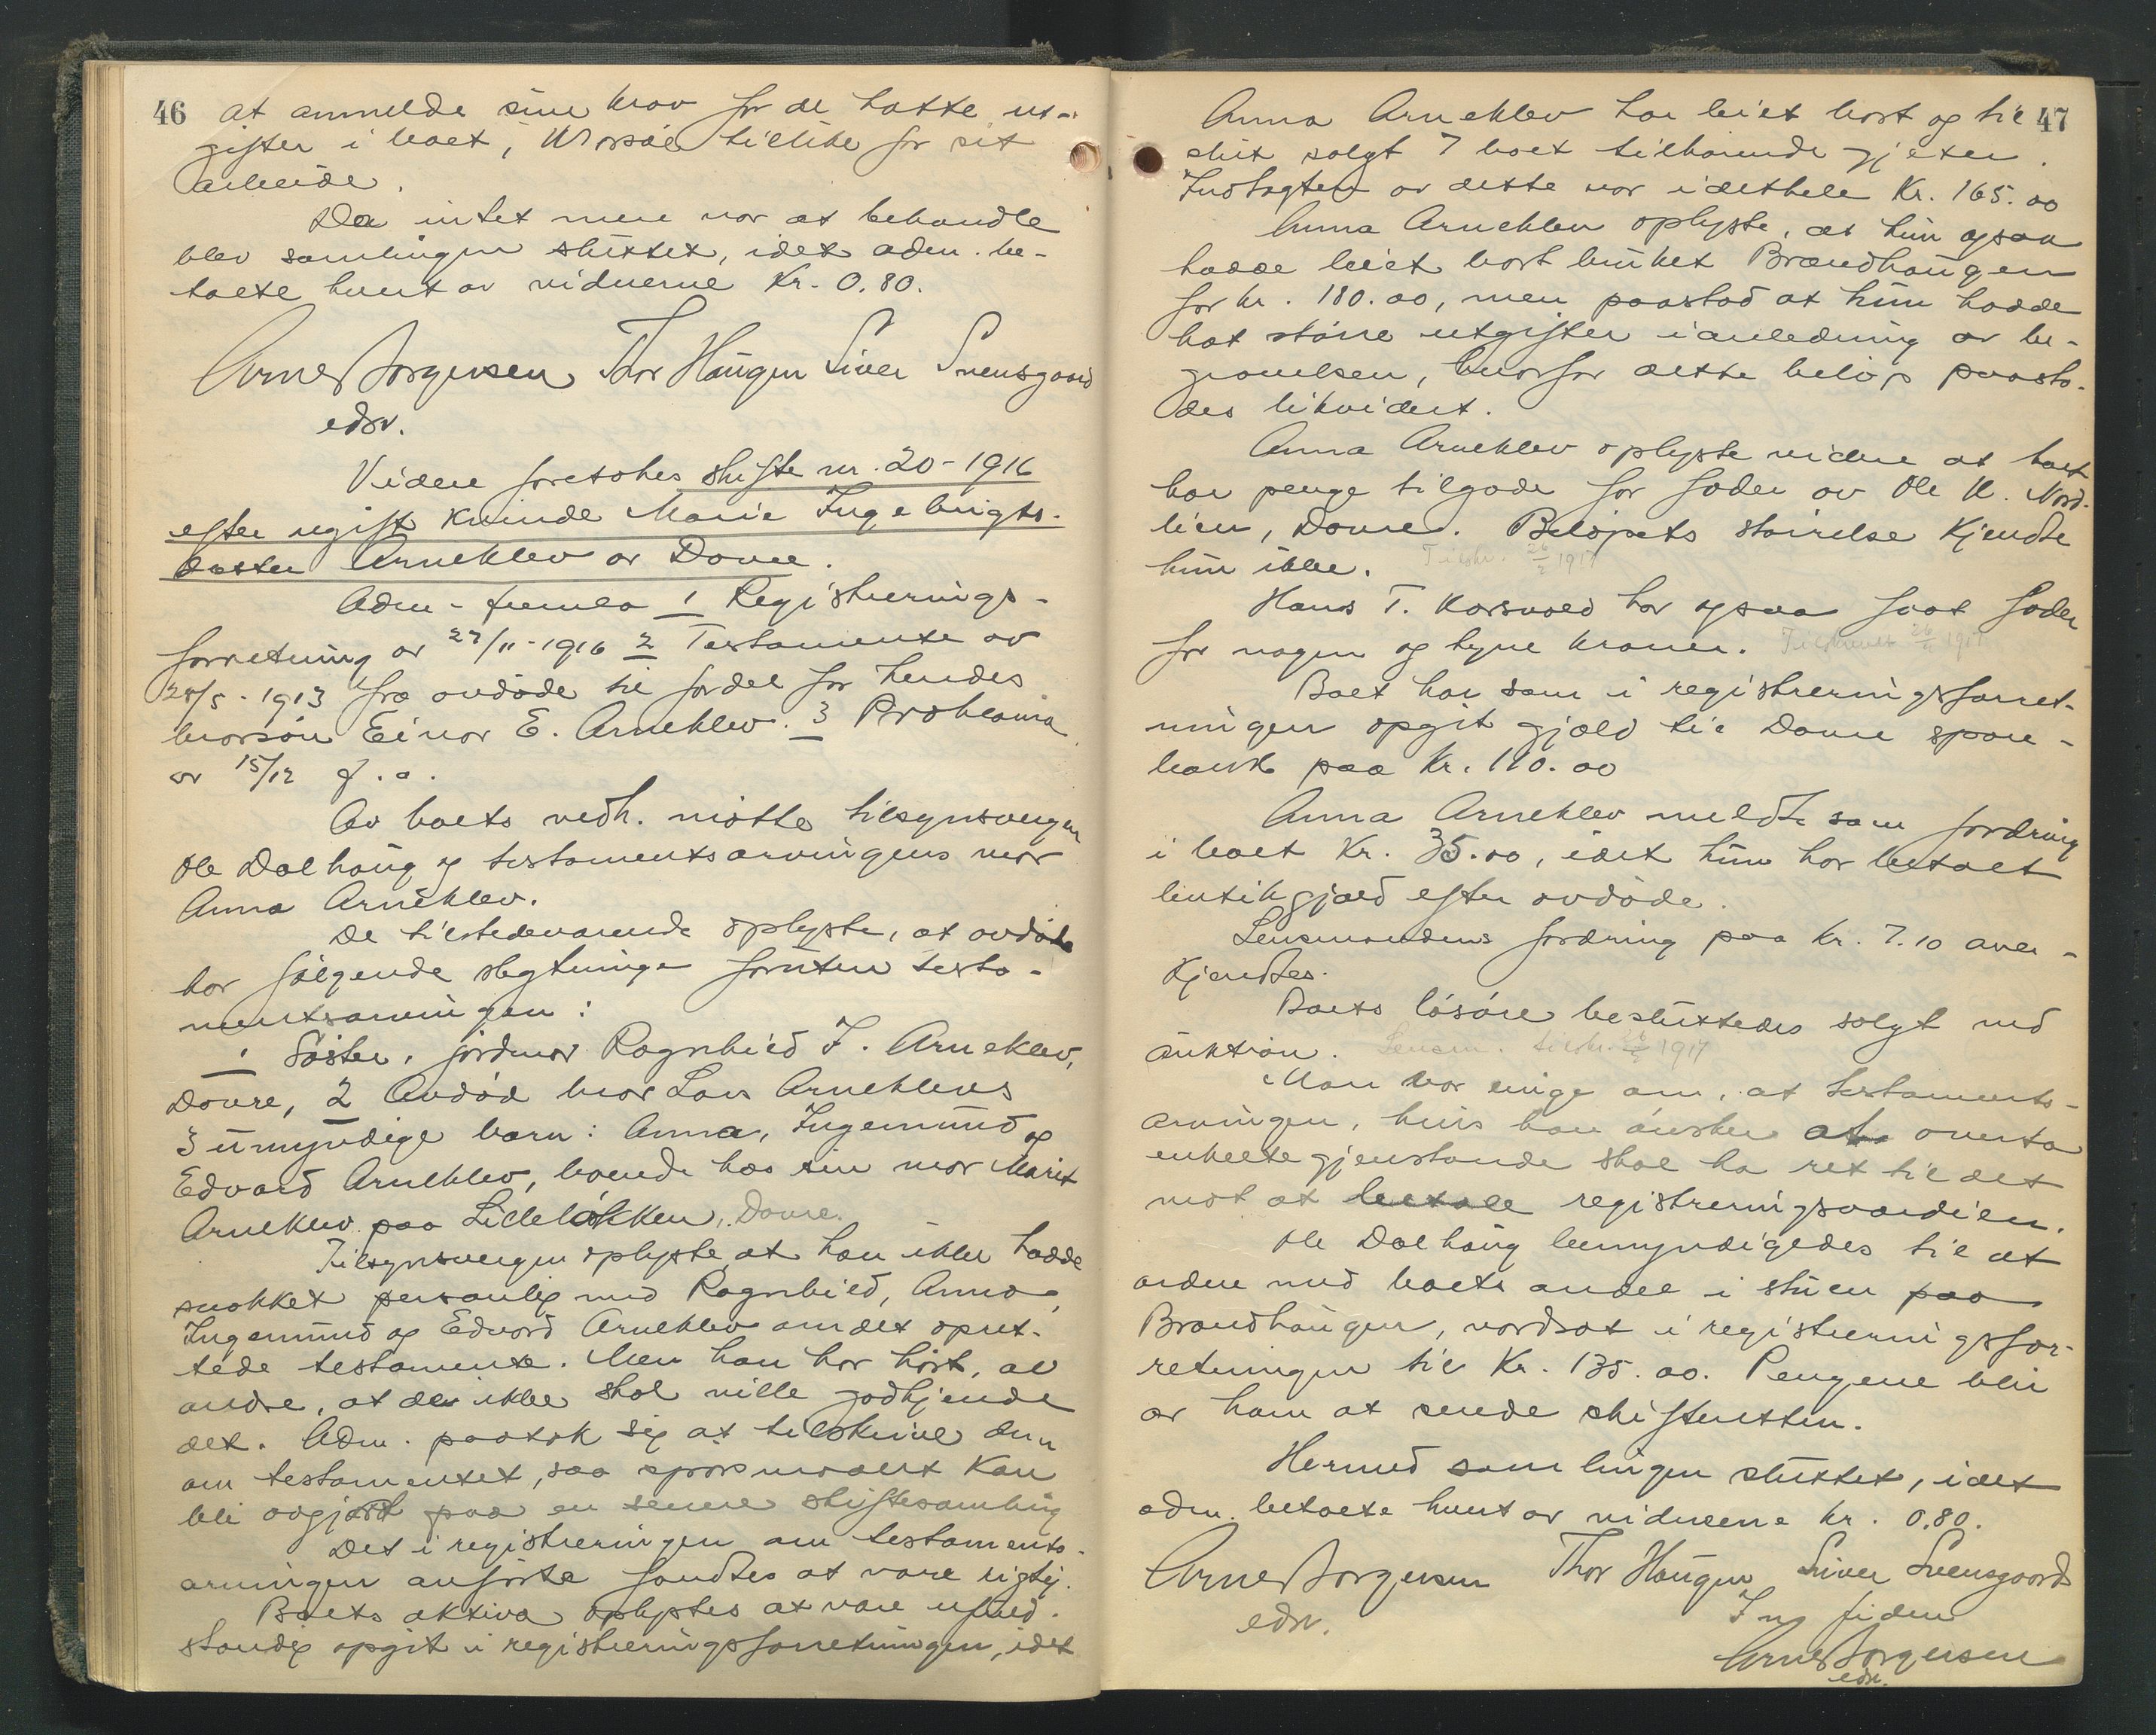 46
at anmelde sine krav for de hatte ut-
gifter i boet, Morsøe tillike for sit
arbeide.
Da intet mere var at behandle
blev samlingen sluttet, idet adm. be-
talte hvert av vidnerne Kr. 0.80.
Arne Jørgensen Thor Haugen Siver Svensgaard
edsv.
Videre foretokes skifte nr. 20-1916
efter ugift kvinde Marie Ingebrigts-
datter Arneklev av Dovre.
Adm. fremla 1 Registrerings-
forretning av 27/11-1916 2 Testamente av
28/5-1913 fra avdøde til fordel for hendes
brorsøn Einar E. Arneklev. 3 Proklama
av 15/12 f. a.
Av boets vedk. møtte tilsynsvergen
Ole Dalhaug og testamentsarvingens mor
Anna Arneklev.
De tilstedeværende oplyste, at avdøde
har følgende slegtninge foruten testa-
mentsarvingen:
1 Søster, jordmor Ragnhild I. Arneklev,
Dovre, 2 Avdød bror Lars Arneklevs
3 umyndige barn: Anna, Ingemund og
Edvard Arneklev, boende hos sin mor Marit
Arneklev paa Lilleløkken, Dovre.
Tilsynsvergen oplyste, at han ikke hadde
snakket personlig med Ragnhild, Anna,
Ingemund og Edvard Arneklev om det opret-
tede testamente. Men han har hørt, av
andre, at de ikke skal ville godkjende
det. Adm. paatok sig at tilskrive dem
om testamentet, saa spørsmaalet kan
bli avgjort paa en senere skiftesamling
Det i registreringen om testaments-
arvingen anførte fandtes at være rigtig.
Boets aktiva oplystes at være ufuld-
stændig opgit i registreringsforretningen, idet
47
Anna Arneklev har leiet bort og til
slut solgt 7 boet tilhørende gjeter.
Indtægten av dette var i det hele Kr. 165.00
Anna Arneklev oplyste, at hun ogsaa
hadde leiet bort bruket Brændhaugen
for kr. 180.00, men paastod at hun hadde
hat større utgifter i anledning av be-
gravelsen, hvorfor dette beløp paasto-
des likvidert.
Anna Arneklev oplyste videre at boet
har penge tilgode for foder av Ole K. Nord-
lien, Dovre. Beløpets størrelse kjendte
hun ikke. Tilskr. 26/2 1917
Hans T. Korsvold har ogsaa faat foder
for nogen og tyve kroner. Tilskrevet 26/2 1917
Boet har som i registreringsforret-
ningen opgit gjæld til Dovre spare-
bank paa Kr. 110.00
Anna Arneklev meldte som fordring
i boet Kr. 35.00, idet hun har betalt
butikgjæld efter avdøde.
Lensmandens fordring paa kr. 7.10 aner-
kjendtes.
Boets løsøre besluttedes solgt ved
auktion. Lensm. tilskr. 26/2 1917
Man var enige om, at testaments-
arvingen, hvis han ønsker at overta
enkelte gjenstande skal ha ret til det
mot at betale registreringsværdien.
Ole Dalhaug bemyndigedes til at
ordne med boets andel i stuen paa
Brændhaugen, verdsat i registreringsfor-
retningen til Kr. 135.00. Pengene blir
av ham at sende skifteretten.
Hermed samlingen sluttet, idet
adm. betalte hvert av vidnerne kr. 0.80.
Arne Jørgensen Thor Haugen Siver Svensgaard
edsv.
In fidem
Arne Jørgensen
edsv.